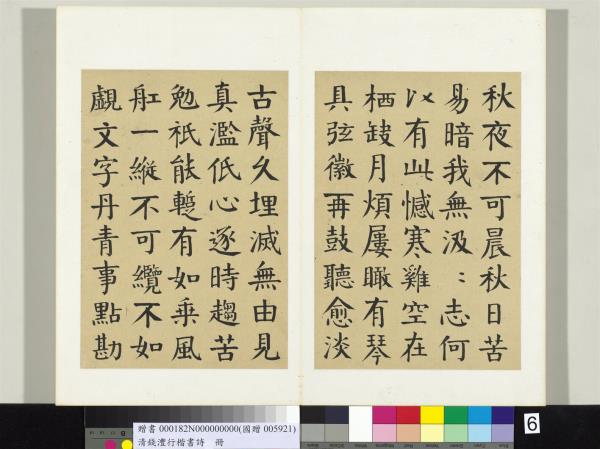 秋夜不可晨秋日苦
易暗我無汲〻志何
以有此憾寒雞空在
栖缺月煩屢瞰有琴
具弦徽再鼓聽愈淡
古聲久埋滅無由見
真濫低心逐時趨苦
勉祇能蹔有如乘風
舡一縱不可纜不如
覷文字丹青事點勘
贈書 000182N000000000(國贈 005921)
清錢灃行楷書詩 冊
6